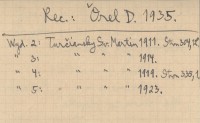 Rec.: Orel D. 1935.
Wyd. 2: Turčiansky Sv. Martin 1911. Stron
" 3: " " " 1914.
" 4: " " " 1919. Stron 335, 1
" 5: " " " 1923.